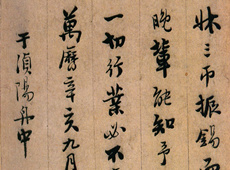 牀三帀振錫而
晚輩能知予
一切行業必不
萬曆辛亥九月
于湞陽舟中